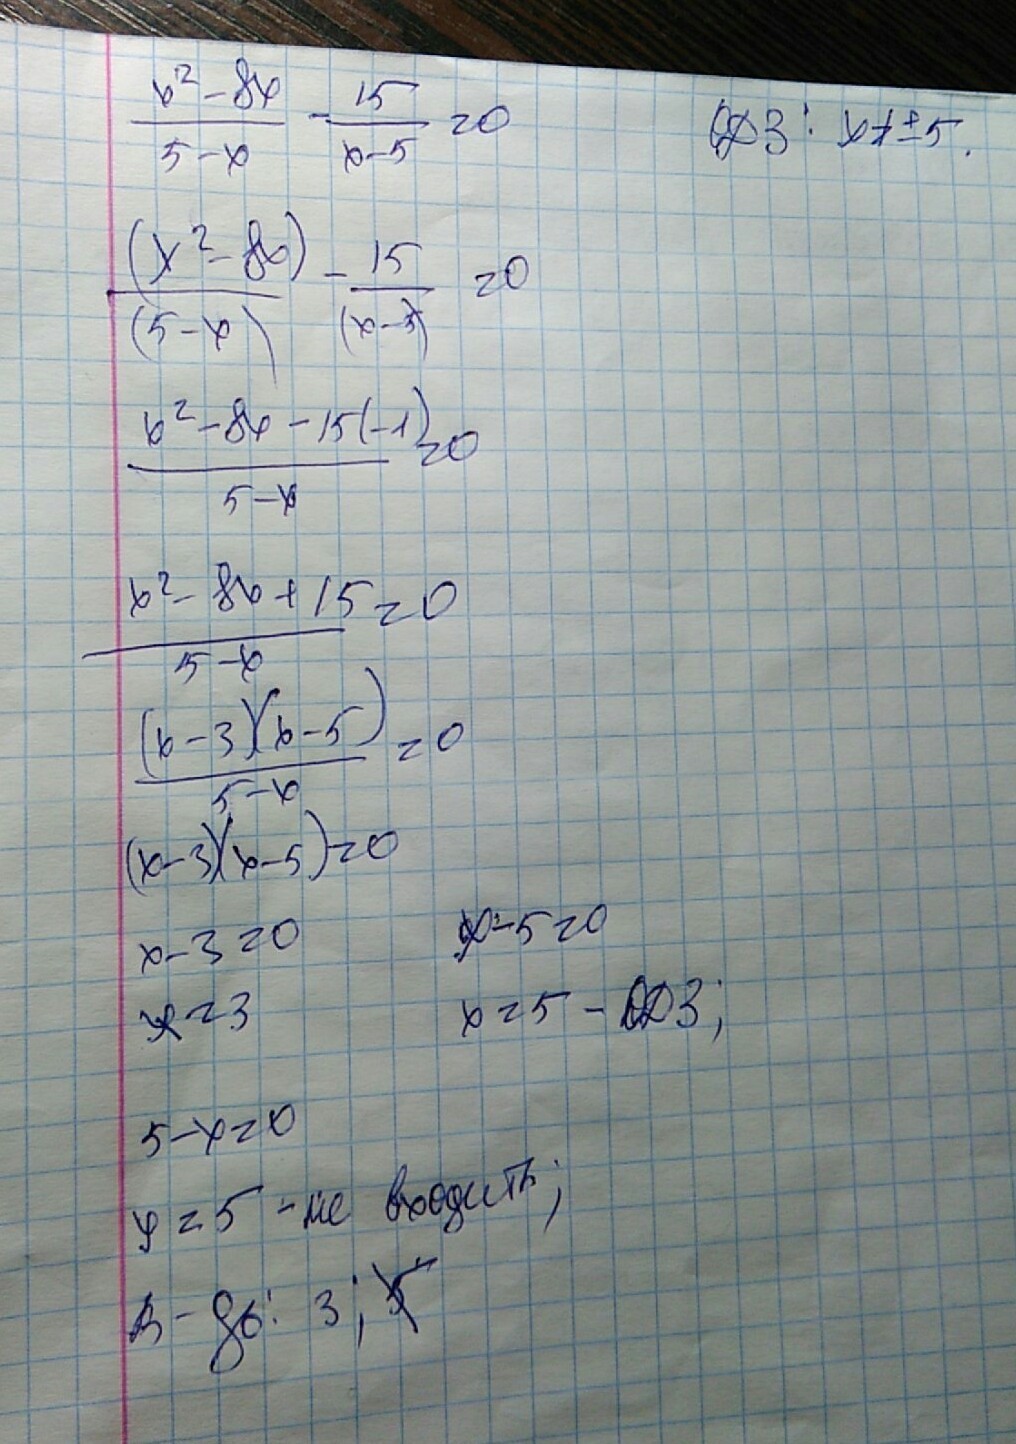 x²-8x / 5-x - 15 / x-5 = 0 ОДЗ: x≠±5.
(x²-8x) / (5-x) - 15 / (x-5) = 0
x²-8x-15(-1) / 5-x = 0
x²-8x+15 / 5-x = 0
(x-3)(x-5) / 5-x = 0
(x-3)(x-5)=0
x-3=0 x-5=0
x=3 x=5 - ОДЗ;
5-x=0
x=5 - не входить;
В-дь: 3;